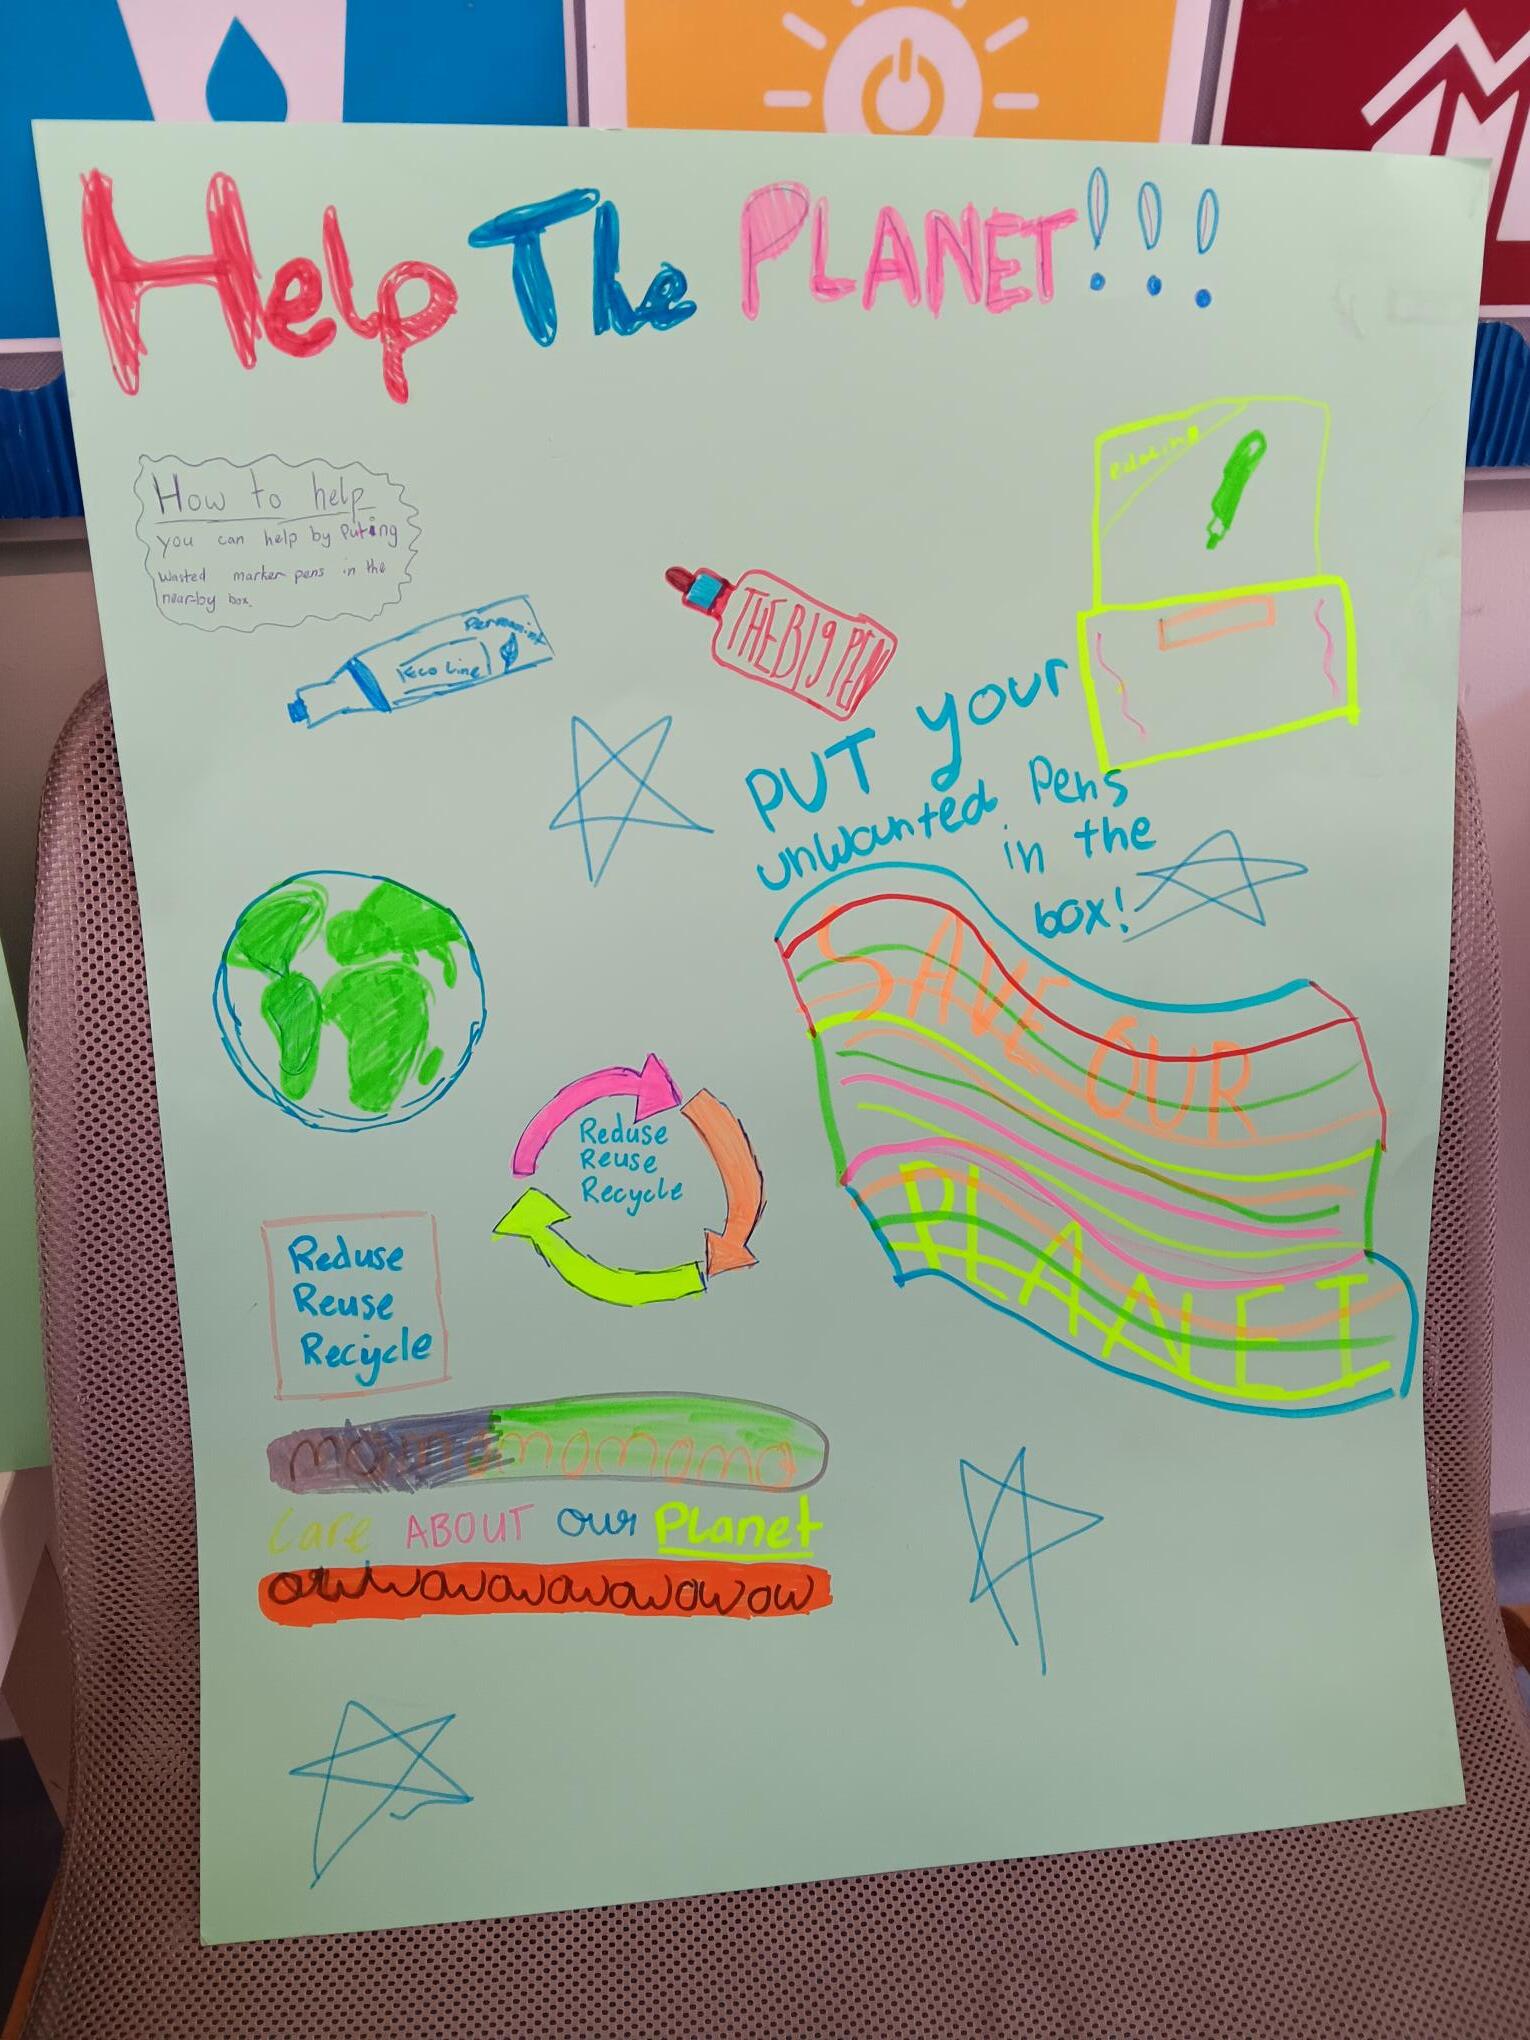 Help The PLANET!!!
How to help
you can help by Puting
wasted marker pens in the
nearby box.
Eco Line
THE BIG PEN
PUT your
unwanted Pens
in the
box!
SAVE OUR
PLANET
Reduse
Reuse
Recycle
Reduse
Reuse
Recijcle
Care ABOUT our Planet